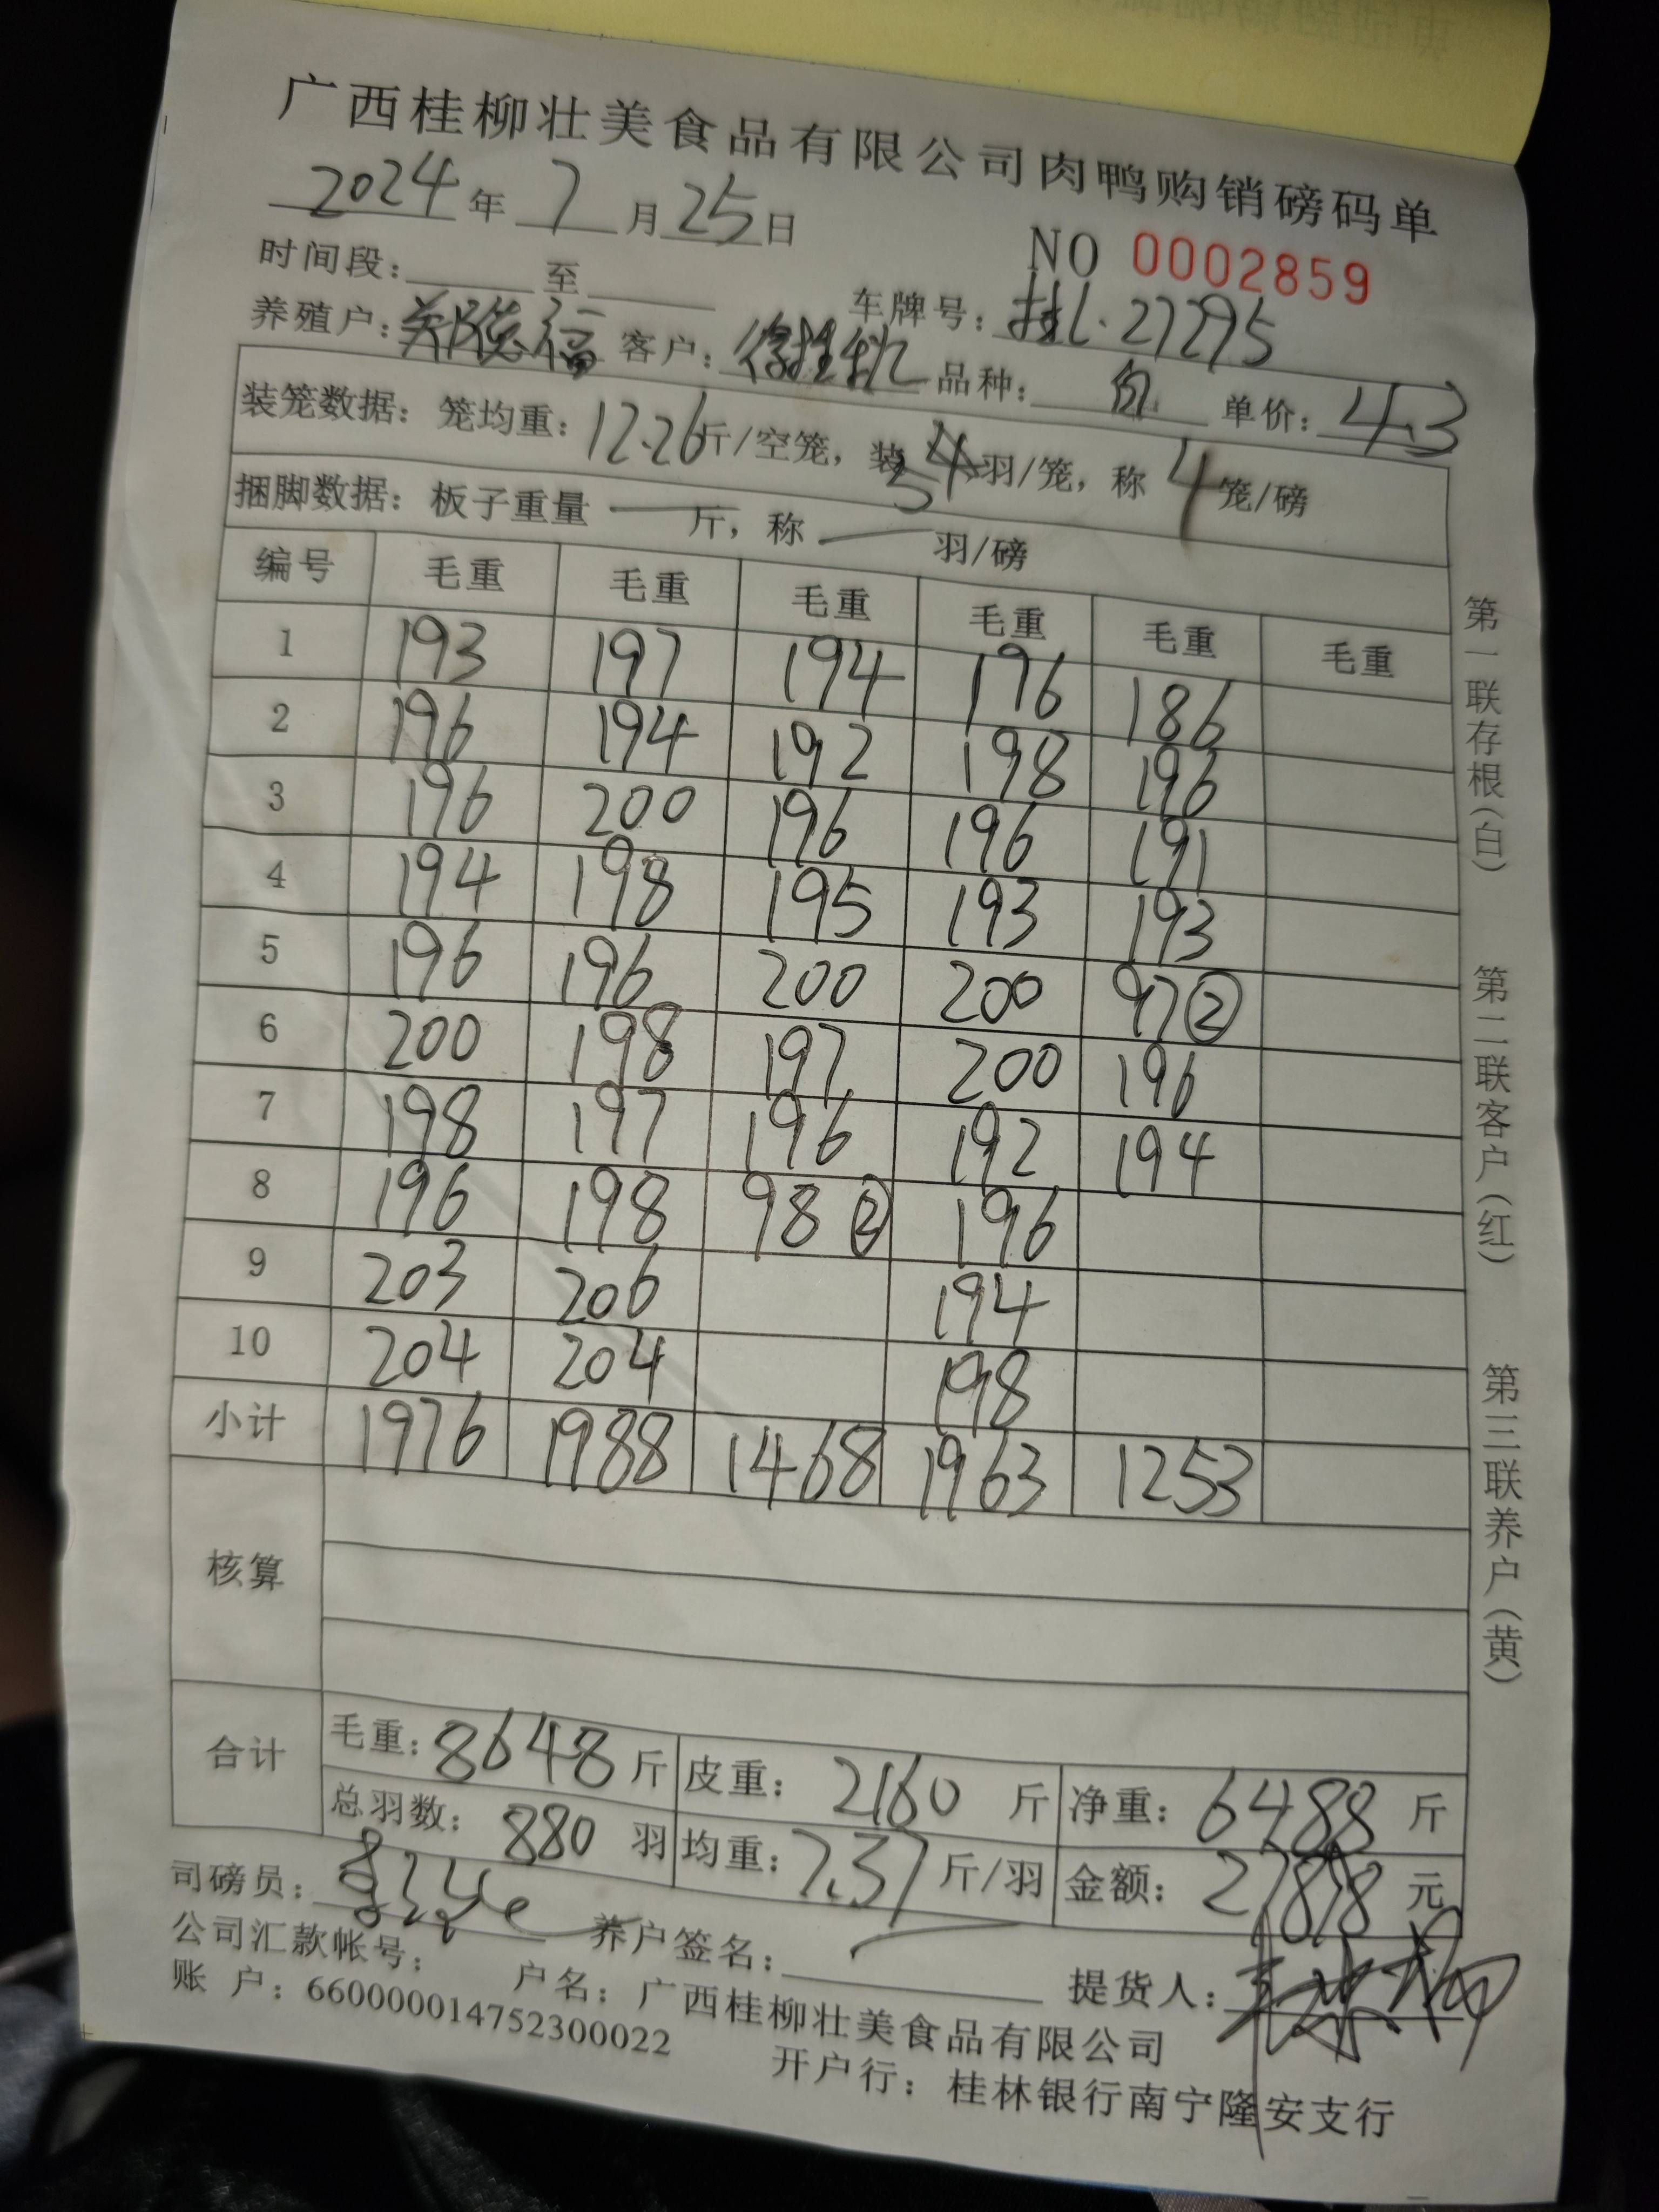 广西桂柳壮美食品有限公司肉鸭购销磅码单
2024年7月25日
NO 0002859
时间段: 至 车牌号: 桂L·27295
养殖户: 德福 客户: 徐桂秋 品种: 单价: 4.3
装笼数据: 笼均重: 12.26斤/空笼, 装5羽/笼, 称4笼/磅
捆脚数据: 板子重量 一 斤, 称 一 羽/磅
编号 毛重 毛重 毛重 毛重 毛重 毛重
1 193 197 194 196 186
2 196 194 192 198 196
3 196 200 196 196 191
4 194 198 195 193 193
5 196 196 200 200 97②
6 200 198 197 200 196
7 198 197 196 192 194
8 196 198 98② 196
9 203 206 194
10 204 204 198
小计 1976 1988 1468 1963 1253
核算
合计
毛重: 8648斤 皮重: 2160斤 净重: 6488斤
总羽数: 880羽 均重: 7.37斤/羽 金额: 27898元
司磅员: 养户签名: 提货人:
公司汇款帐号: 户名: 广西桂柳壮美食品有限公司
账 户: 660000014752300022 开户行: 桂林银行南宁隆安支行
第一联存根(白)
第二联客户(红)
第三联养户(黄)